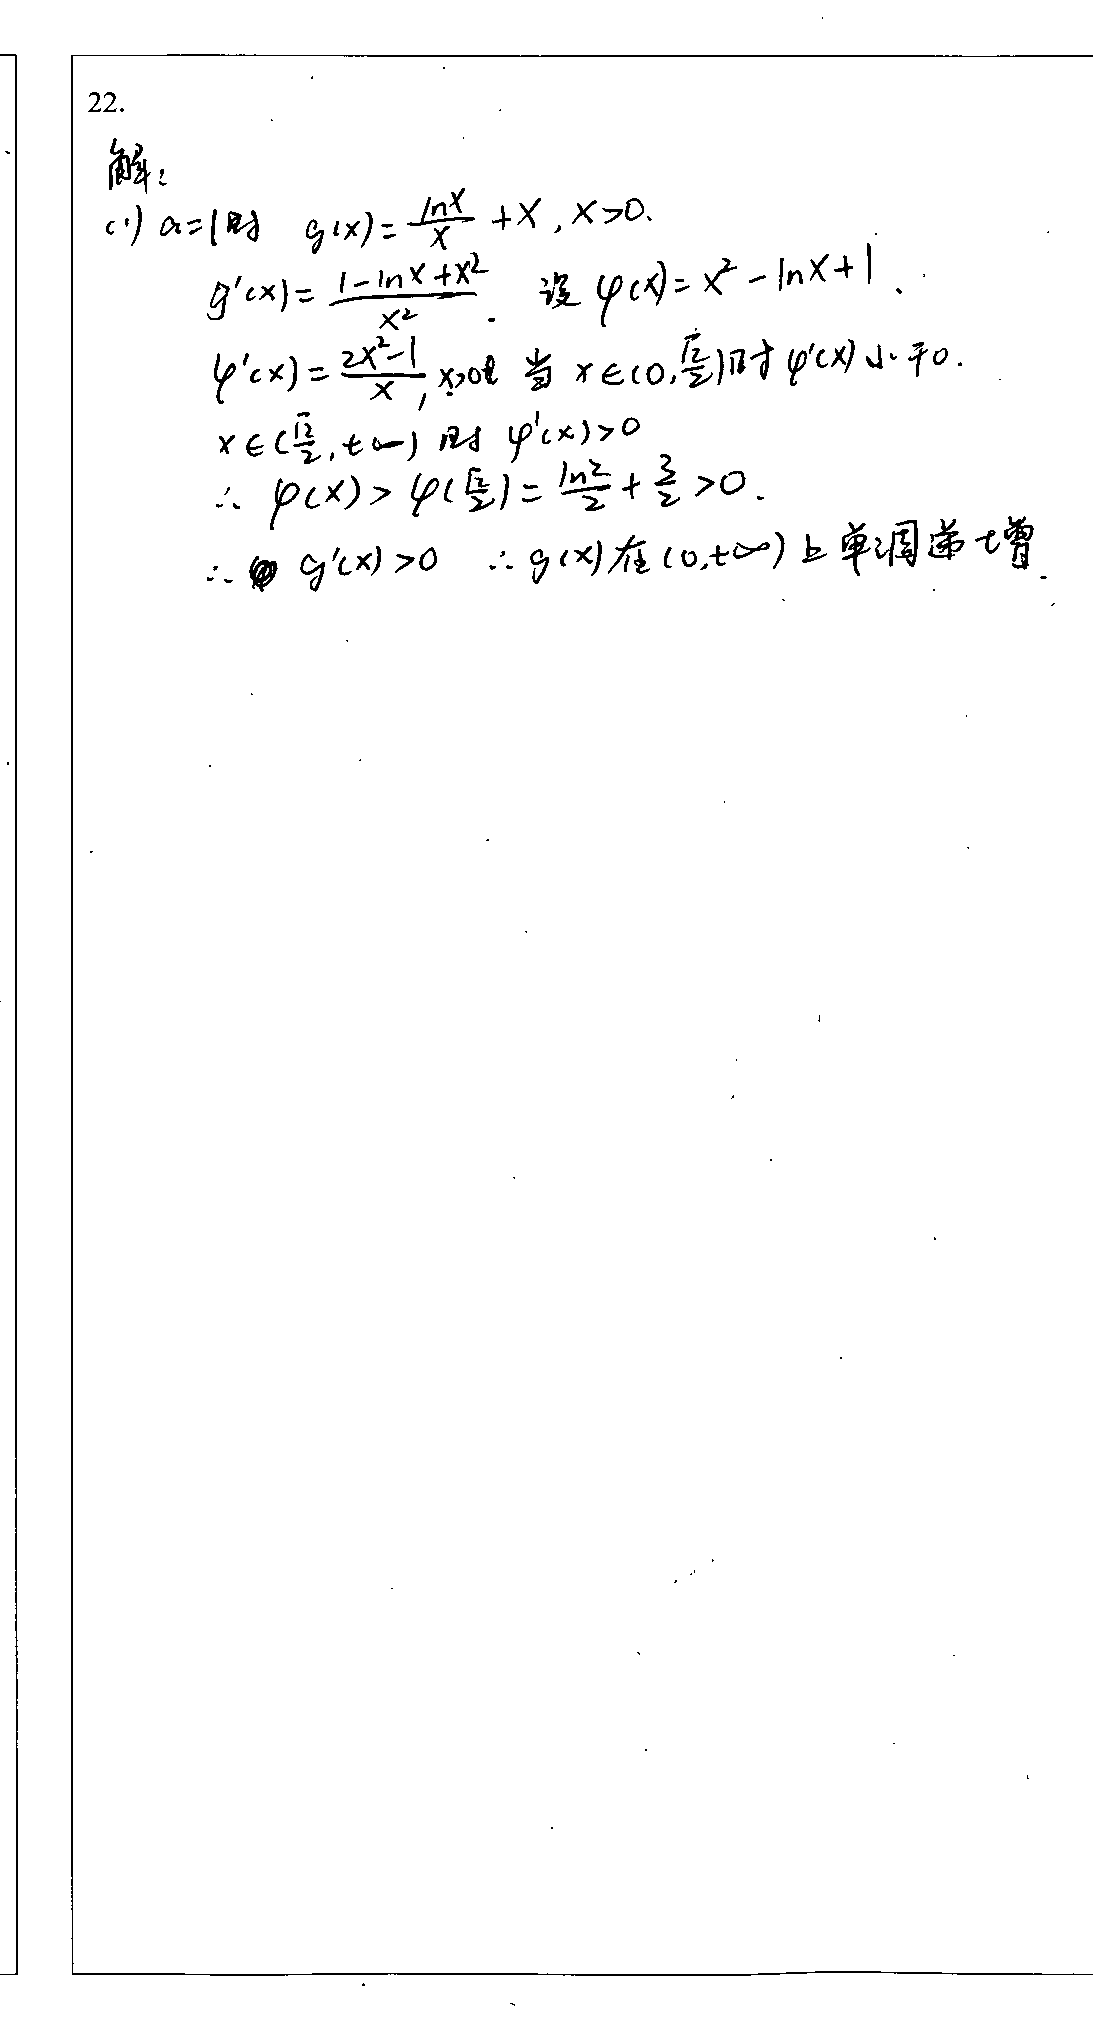 22.
解:
(1) a=1时 g(x)=\frac{lnx}{x}+x, x>0.
g'(x)=\frac{1-lnx+x²}{x²}. 设 φ(x)=x²-lnx+1.
φ'(x)=\frac{2x²-1}{x}, x>0 当 x∈(0,\frac{√2}{2})时 φ'(x)小于0.
x∈(\frac{√2}{2},+∞)时 φ'(x)>0
∴ φ(x)>φ(\frac{√2}{2})=\frac{ln2}{2}+\frac{3}{2}>0.
∴ g'(x)>0 ∴g(x)在(0,+∞)上单调递增.